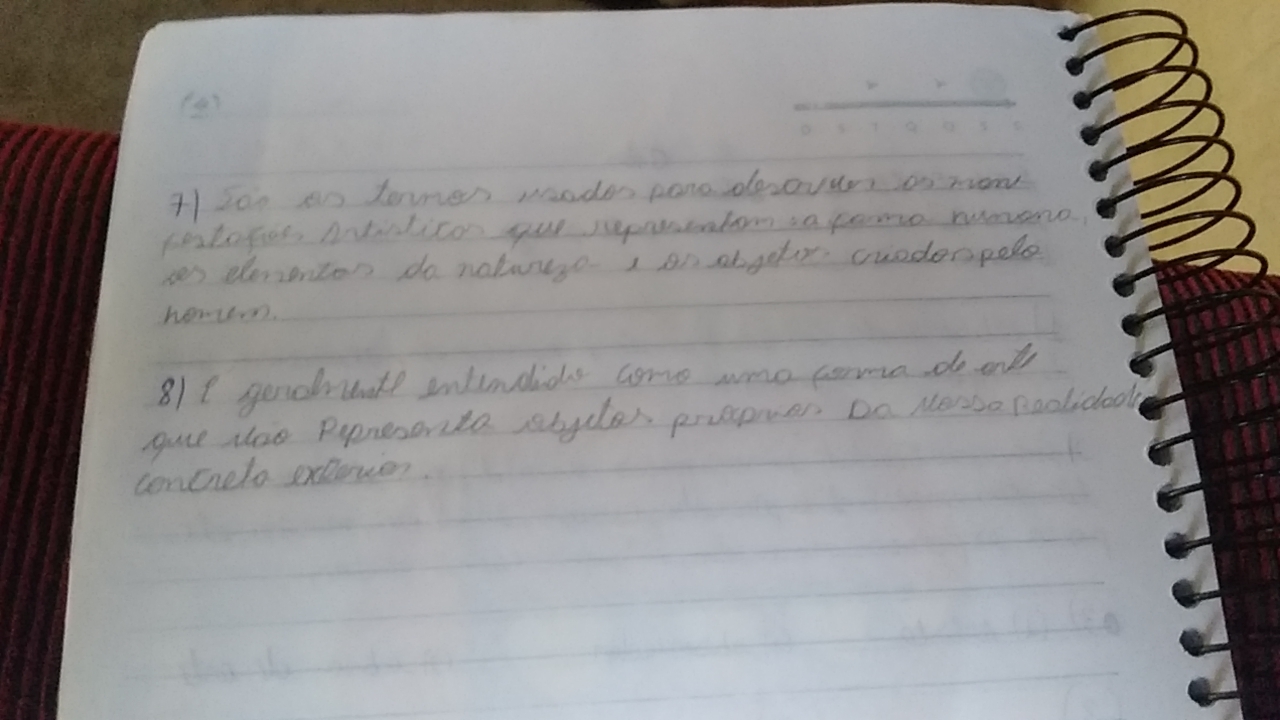 7) São os termos usados para descrever as mani
festações Artísticas que representam a forma humana,
os elementos da natureza e os objetos criados pelo
homem.
8) É geralmente entendido como uma forma de arte
que não Representa objetos próprios Da Nossa Realidade
concreta exterior.